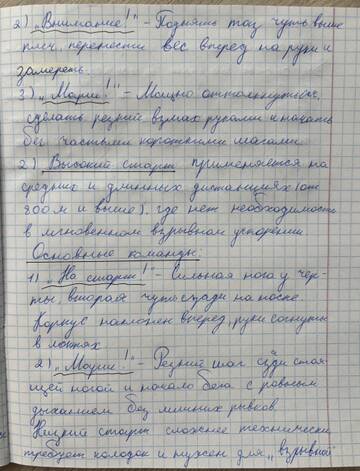 2) „Внимание!" – Поднять таз чуть выше
плеч, перенести вес вперед на руки и
замереть.
3) „Марш!" – Мощно оттолкнуться,
сделать резкий взмах руками и начать
бег частыми короткими шагами.
2) Высокий старт применяется на
средних и длинных дистанциях (от
800 м и выше), где нет необходимости
в мгновенном взрывном ускорении
Основные команды:
1) „На старт!" – Сильная нога у чер-
ты, вторая чуть сзади на носке.
Корпус наклонен вперед, руки согнуты
в локтях
2) „Марш!" – Резкий шаг сзади стоя-
щей ногой и начало бега с ровным
дыханием без лишних рывков
Низкий старт сложнее технически
требует колодок и нужен для „взрывной